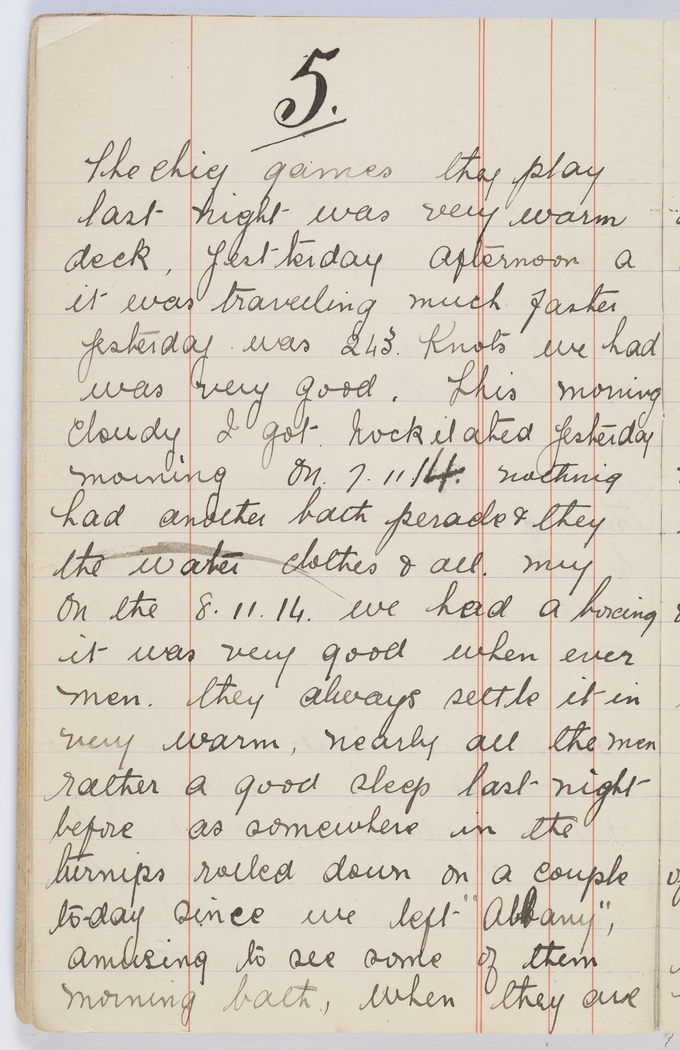 5.
The chig games they play
last night was very warm
deck, Yesterday afternoon a
it was traveling much faster
Yesterday was 243. Knots we had
was very good. This morning
Cloudy I got Nockilated Yesterday
morning On. 7.11.14. nothing
had another bath perade & they
the water clothes & all. my
On the 8.11.14. we had a boxing
it was very good when ever
men. they always settle it in
very warm, nearly all the men
rather a good sleep last night
before as somewhere in the
turnips rolled down on a couple
to-day since we left "Albany",
amusing to see some of them
morning bath, when they are